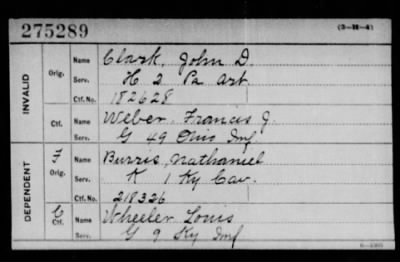 275289 (3-H-4)
INVALID
Orig. Name Clark, John D.
Serv. H 2 Pa Art.
Ctf. No. 182628
Ctf. Name Weber, Francis J.
Serv. G 49 Ohio Inf
DEPENDENT
F Orig. Name Burris, Nathaniel
Serv. K 1 Ky Cav.
Ctf. No. 218326
C Ctf. Name Wheeler Louis
Serv. G 9 Ky Inf